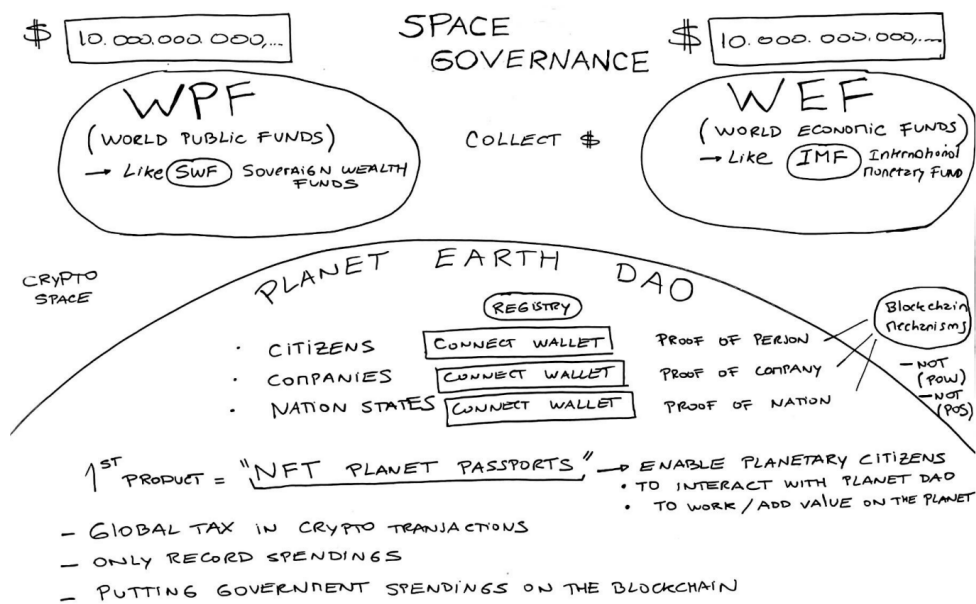 $ 10.000.000.000,...
SPACE
GOVERNANCE
$ 10.000.000.000,...
WPF
(WORLD PUBLIC FUNDS)
→ Like SWF SOVERAIGN WEALTH
FUNDS
COLLECT $
WEF
(WORLD ECONOMIC FUNDS)
→ Like IMF International
Monetary FUND
CRYPTO
SPACE
PLANET EARTH DAO
REGISTRY
Blockchain
Mechanisms
· CITIZENS CONNECT WALLET PROOF OF PERSON
· COMPANIES CONNECT WALLET PROOF OF COMPANY
· NATION STATES CONNECT WALLET PROOF OF NATION
- NOT
(POW)
- NOT
(POS)
1ST PRODUCT = "NFT PLANET PASSPORTS" → ENABLE PLANETARY CITIZENS
· TO INTERACT WITH PLANET DAO
· TO WORK / ADD VALUE ON THE PLANET
- GLOBAL TAX IN CRYPTO TRANSACTIONS
- ONLY RECORD SPENDINGS
- PUTTING GOVERNMENT SPENDINGS ON THE BLOCKCHAIN